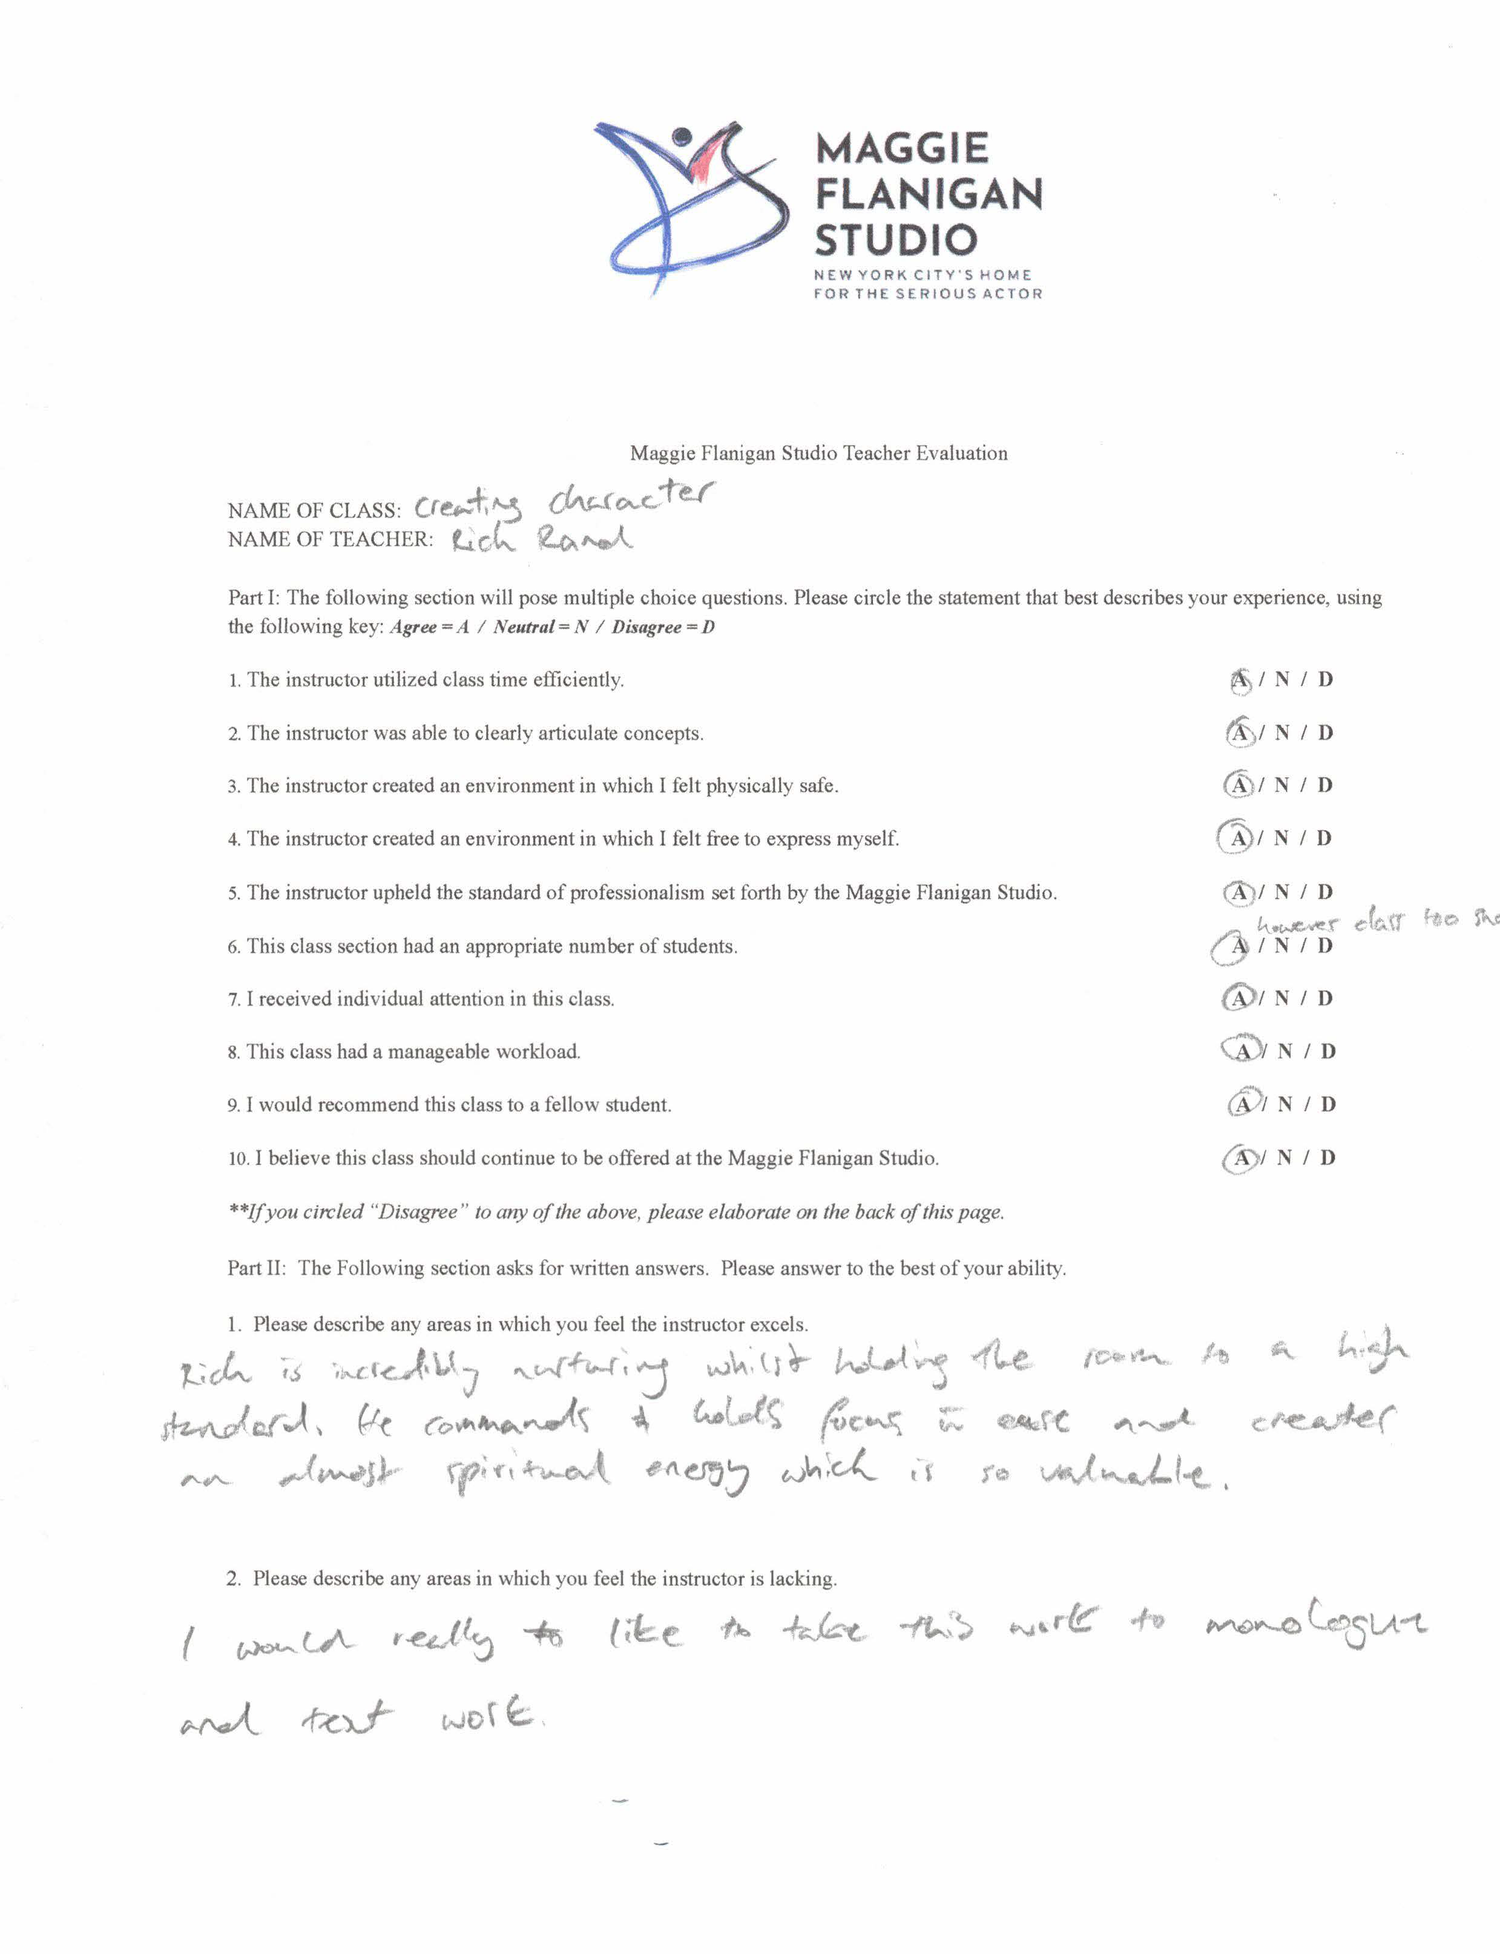 MAGGIE
FLANIGAN
STUDIO
NEW YORK CITY'S HOME
FOR THE SERIOUS ACTOR
Maggie Flanigan Studio Teacher Evaluation
NAME OF CLASS: Creating character
NAME OF TEACHER: Rich Rand
Part I: The following section will pose multiple choice questions. Please circle the statement that best describes your experience, using
the following key: Agree = A / Neutral = N / Disagree = D
1. The instructor utilized class time efficiently. A / N / D
2. The instructor was able to clearly articulate concepts. A / N / D
3. The instructor created an environment in which I felt physically safe. A / N / D
4. The instructor created an environment in which I felt free to express myself. A / N / D
5. The instructor upheld the standard of professionalism set forth by the Maggie Flanigan Studio. A / N / D
however class too
6. This class section had an appropriate number of students. A / N / D
7. I received individual attention in this class. A / N / D
8. This class had a manageable workload. A / N / D
9. I would recommend this class to a fellow student. A / N / D
10. I believe this class should continue to be offered at the Maggie Flanigan Studio. A / N / D
**If you circled “Disagree” to any of the above, please elaborate on the back of this page.
Part II: The Following section asks for written answers. Please answer to the best of your ability.
1. Please describe any areas in which you feel the instructor excels.
Rich is incredibly nurturing whilst holding the room to a high
standard. He commands & holds focus w ease and creates
an almost spiritual energy which is so valuable.
2. Please describe any areas in which you feel the instructor is lacking.
I would really like to take this work to monologue
and text work.